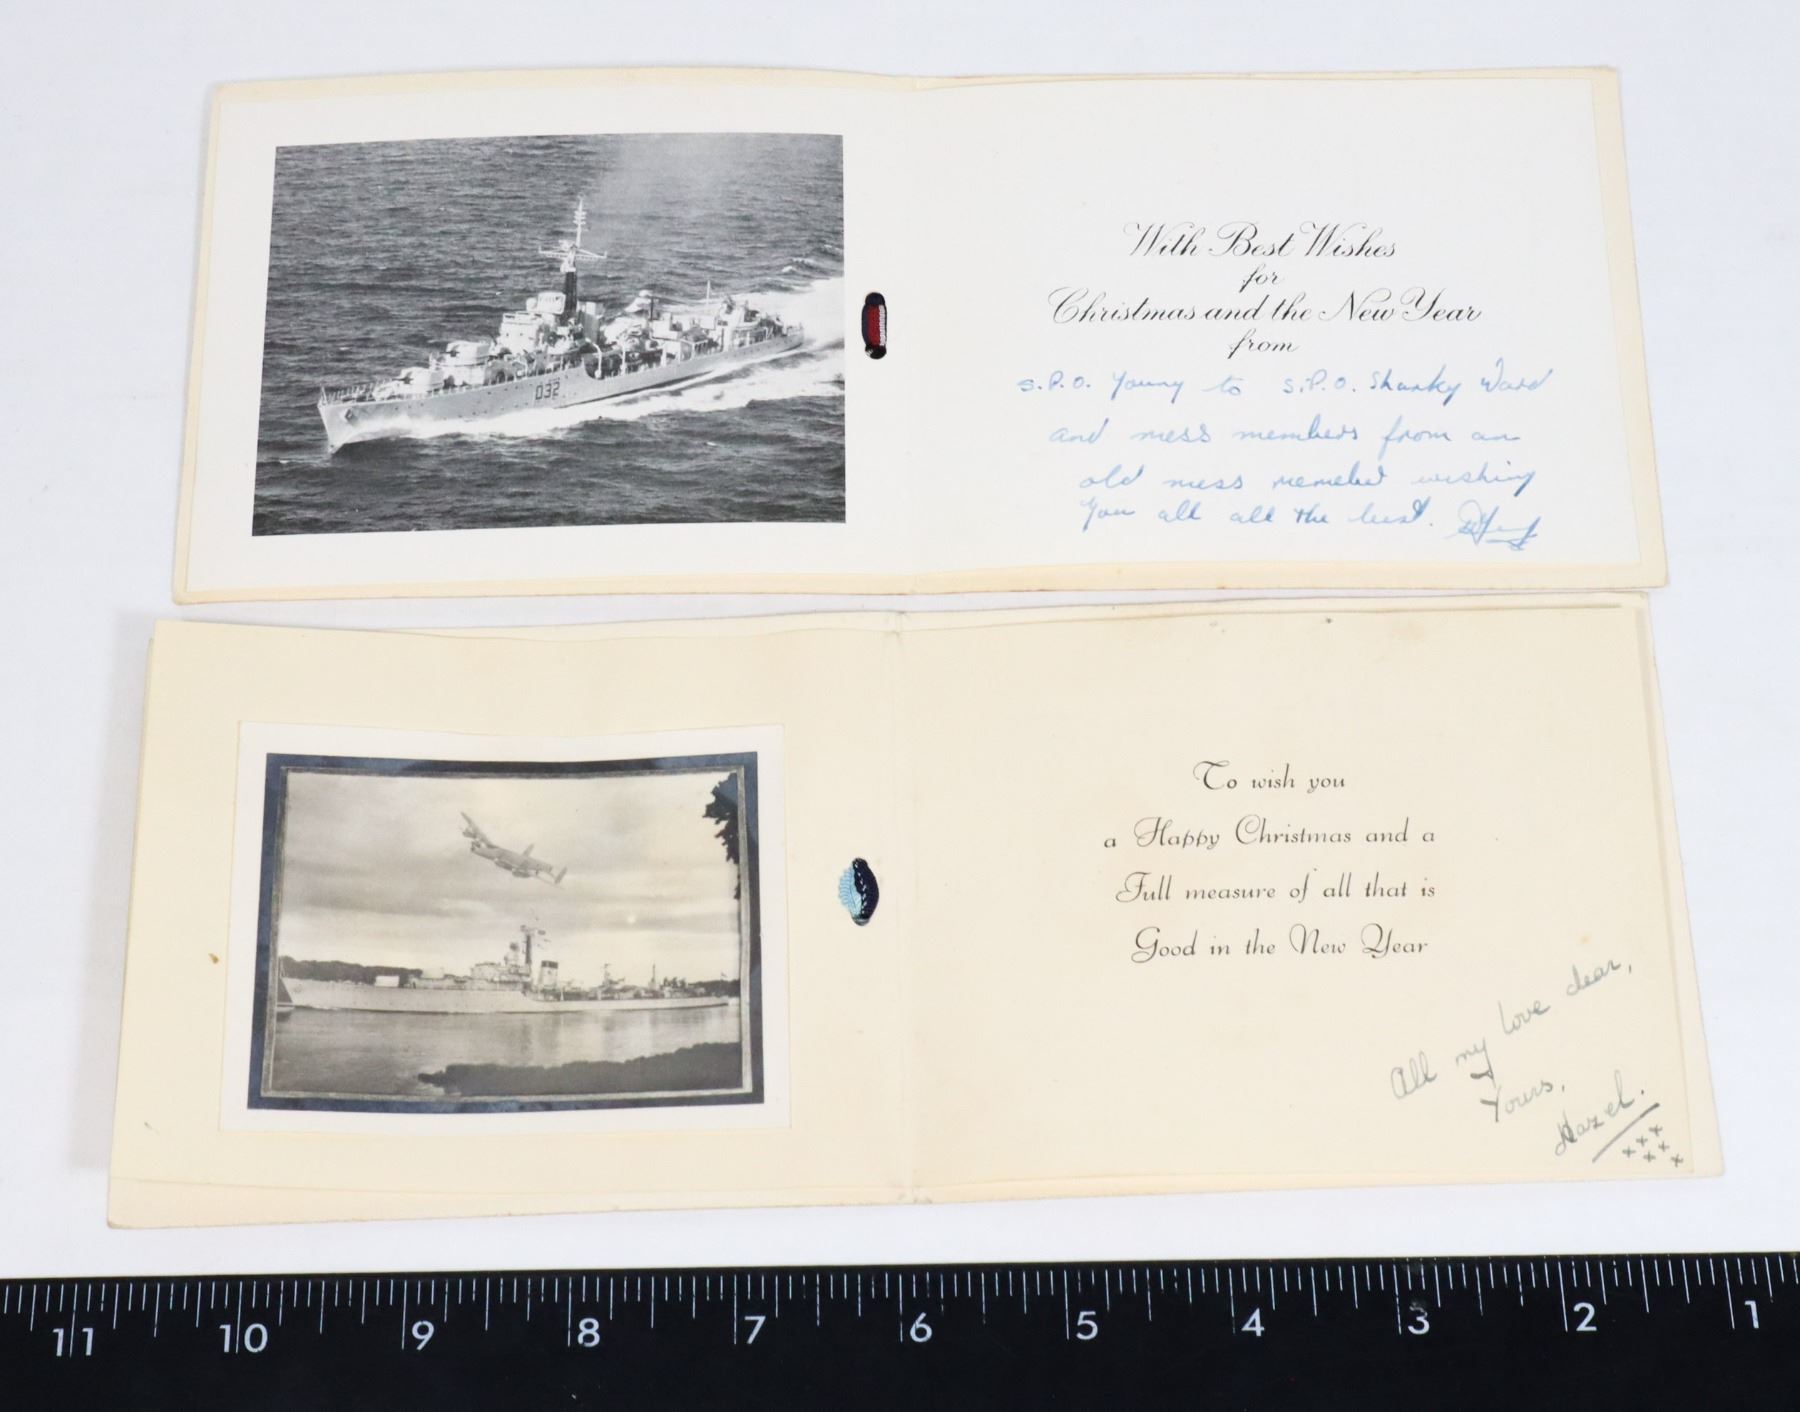 D32
With Best Wishes
for
Christmas and the New Year
from
S.P.O. Young to S.P.O. Sharky Ward
and mess members from an
old mess member wishing
You all all the best.
To wish you
a Happy Christmas and a
Full measure of all that is
Good in the New Year
All my love dear,
Yours,
Hazel.
xxx
xxx
11 10 9 8 7 6 5 4 3 2 1